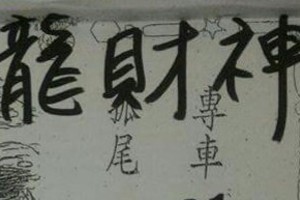 龍財神
專車
尾